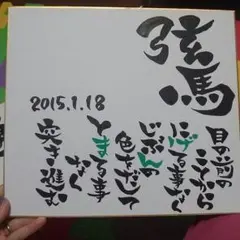 弦馬
目の前の
ことから
にげる事なく
じぶんの
色をだして
とまる事
なく
突き進む
2015.1.18